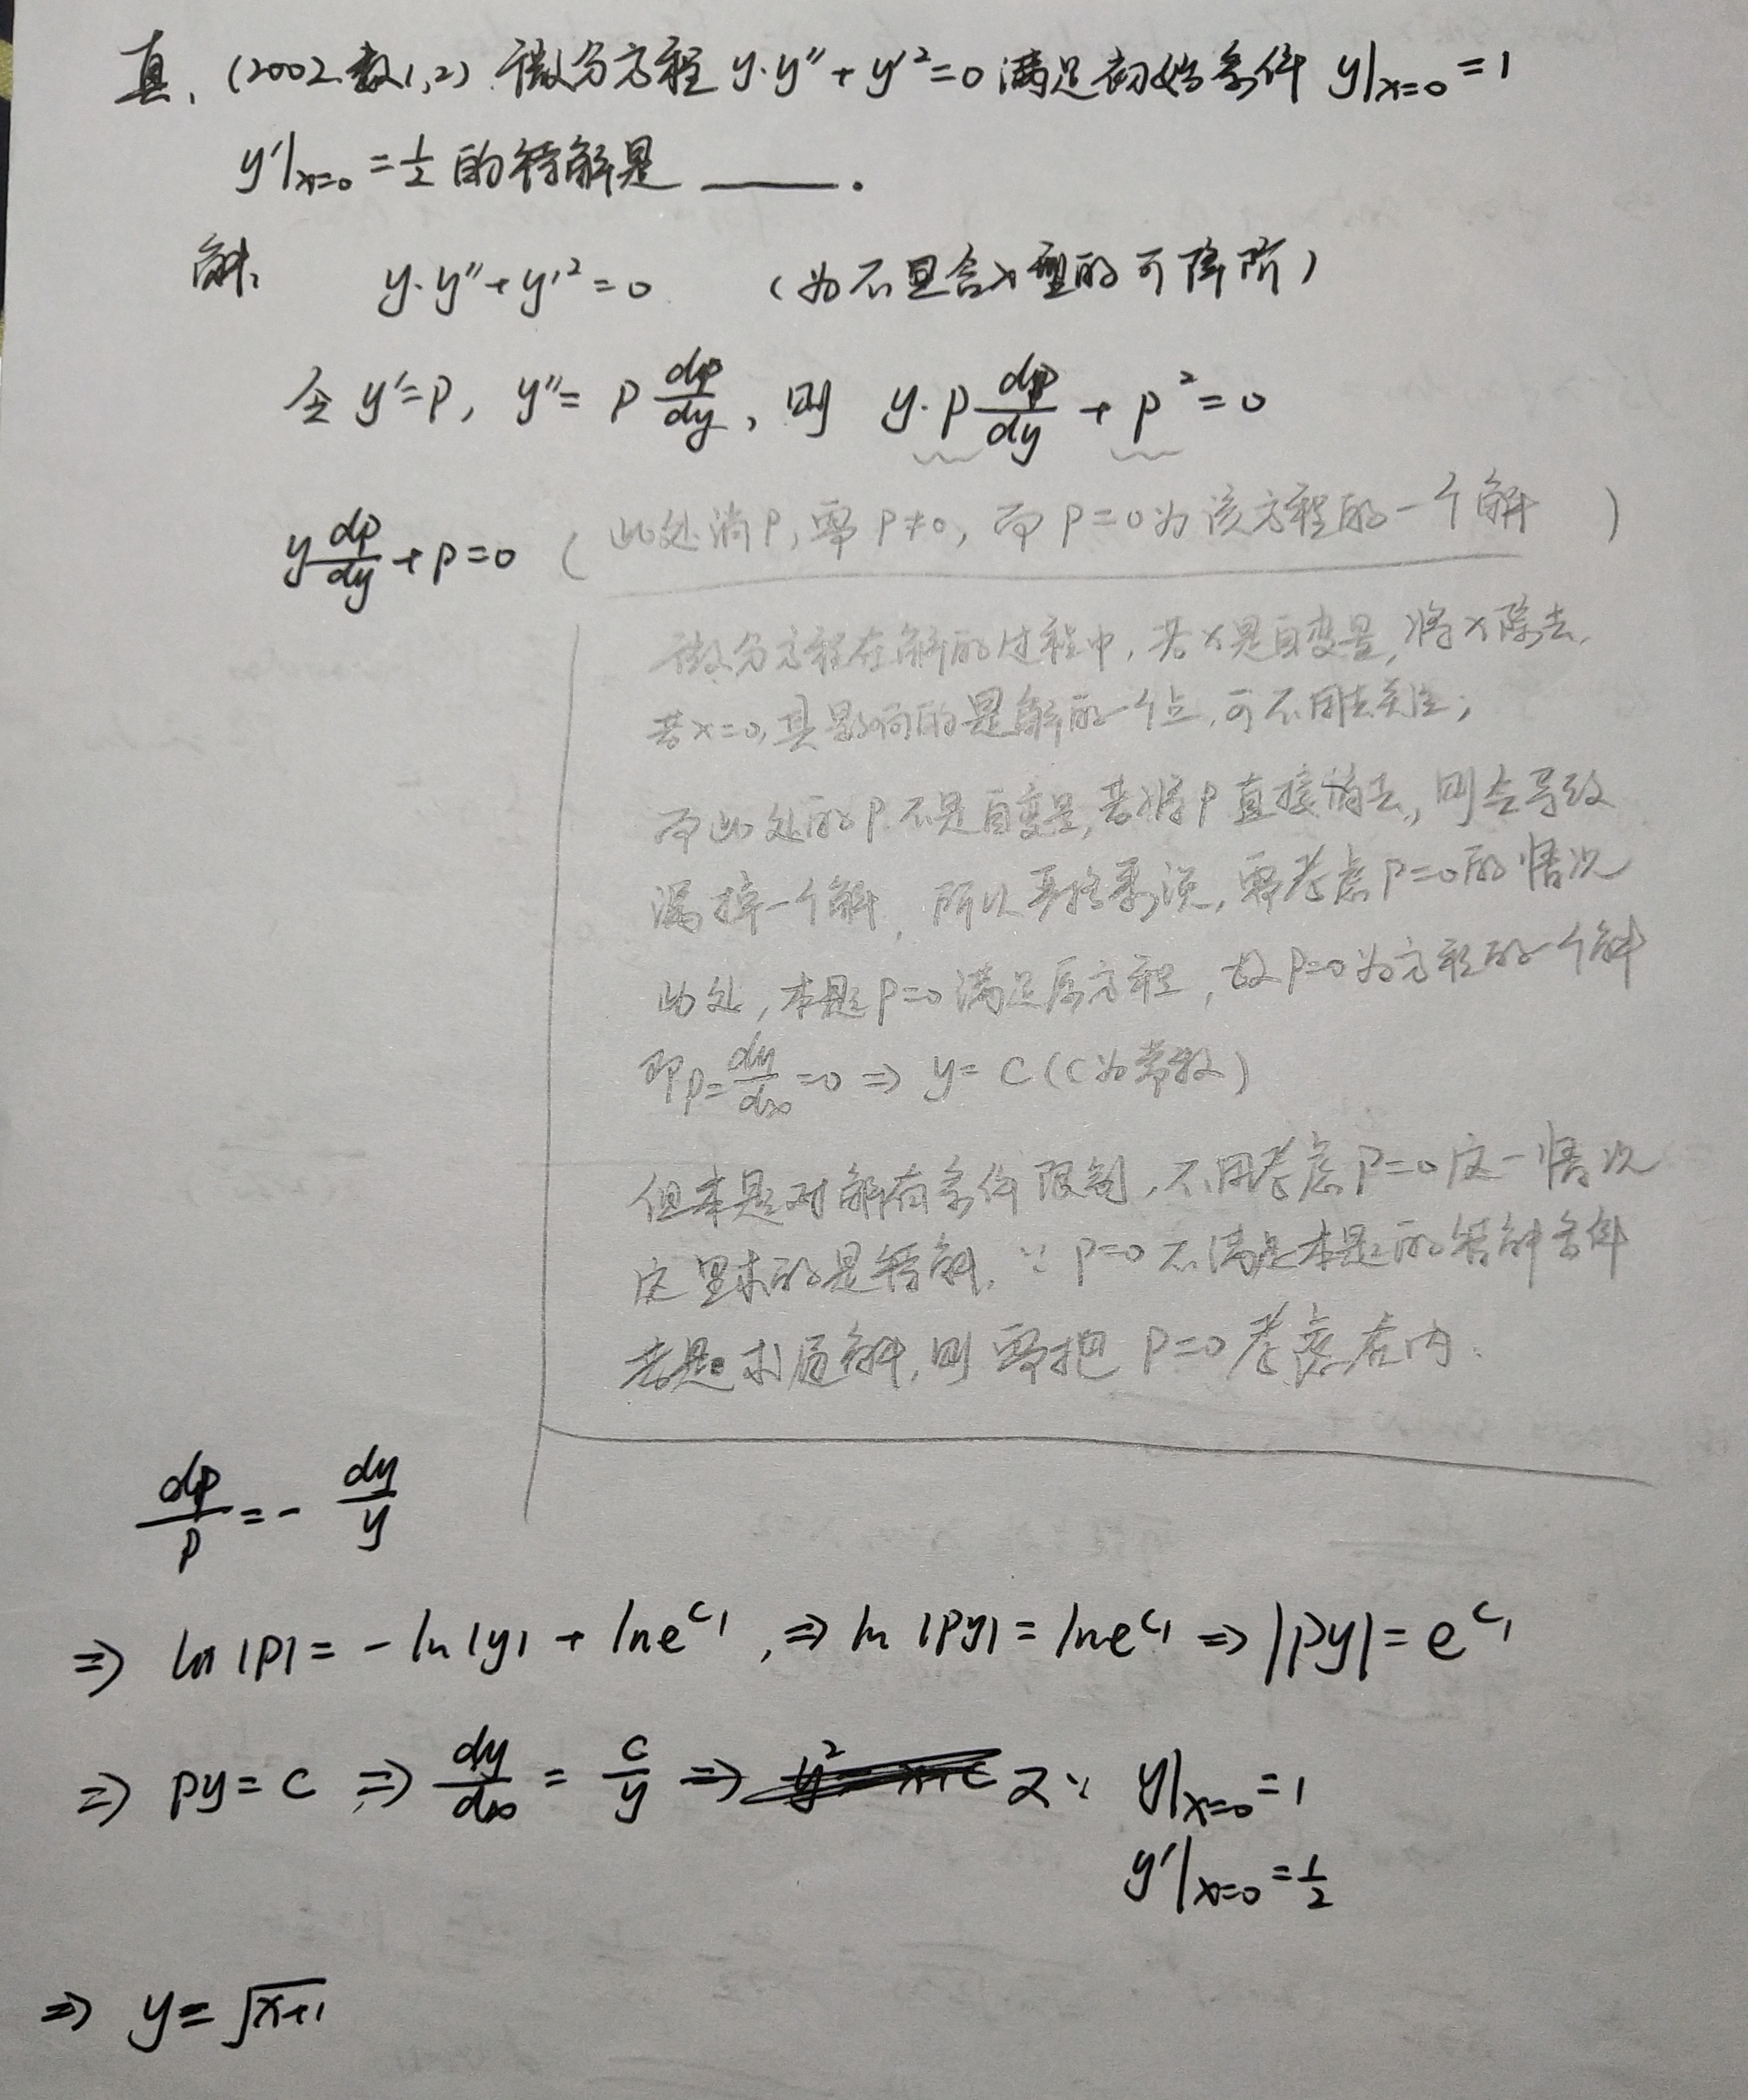 真、(2002.数1,2) 微分方程 y·y″+y′²=0 满足初始条件 y|x=0=1
y′|x=0=1/2 的特解是 ____.
解: y·y″+y′²=0 (为不显含x型的可降阶)
令 y′=p, y″=p dp/dy, 则 y·p dp/dy+p²=0
y dp/dy+p=0 (此处消p,需p≠0,而p=0为该方程的一个解)
微分方程在解的过程中,若x是自变量,将x除去,
若x=0,其影响的是解的一个点,可不用去关注;
而此处的p不是自变量,若将p直接消去,则会导致
漏掉一个解,所以严格来说,需考虑p=0的情况
此处,本题p=0满足原方程,故p=0为方程的一个解
即p=dy/dx=0⇒y=C(C为常数)
但本题对解有条件限制,不用考虑p=0这一情况
这里求的是特解,∵p=0不满足本题的特解条件
若题求通解,则需把p=0考虑在内.
dp/p=-dy/y
⇒ ln|p|=-ln|y|+lne^C₁,⇒ln|py|=lne^C₁⇒|py|=e^C₁
⇒ py=C⇒dy/dx=C/y⇒ 又∵ y|x=0=1
y′|x=0=1/2
⇒ y=√(x+1)